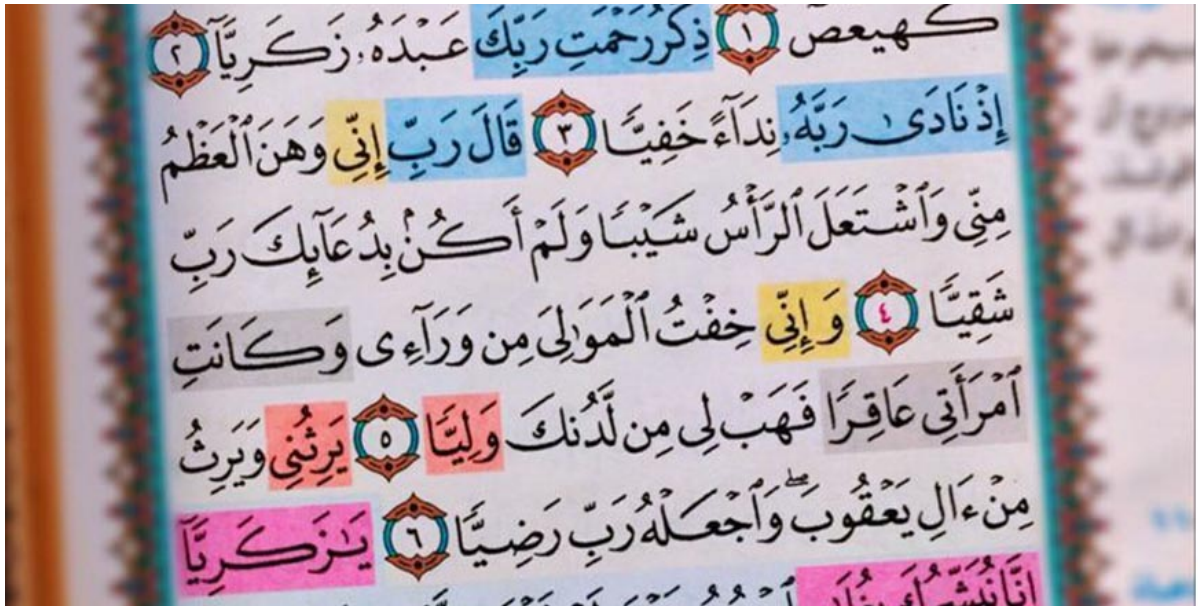 كٓهيعٓصٓ ١ ذِكۡرُ رَحۡمَتِ رَبِّكَ عَبۡدَهُۥ زَكَرِيَّآ ٢
إِذۡ نَادَىٰ رَبَّهُۥ نِدَآءً خَفِيّٗا ٣ قَالَ رَبِّ إِنِّي وَهَنَ ٱلۡعَظۡمُ
مِنِّي وَٱشۡتَعَلَ ٱلرَّأۡسُ شَيۡبٗا وَلَمۡ أَكُنۢ بِدُعَآئِكَ رَبِّ
شَقِيّٗا ٤ وَإِنِّي خِفۡتُ ٱلۡمَوَٰلِيَ مِن وَرَآءِي وَكَانَتِ
ٱمۡرَأَتِي عَاقِرٗا فَهَبۡ لِي مِن لَّدُنكَ وَلِيّٗا ٥ يَرِثُنِي وَيَرِثُ
مِنۡ ءَالِ يَعۡقُوبَۖ وَٱجۡعَلۡهُ رَبِّ رَضِيّٗا ٦ يَٰزَكَرِيَّآ
إِنَّا نُبَشِّرُكَ بِغُلَٰمٍ